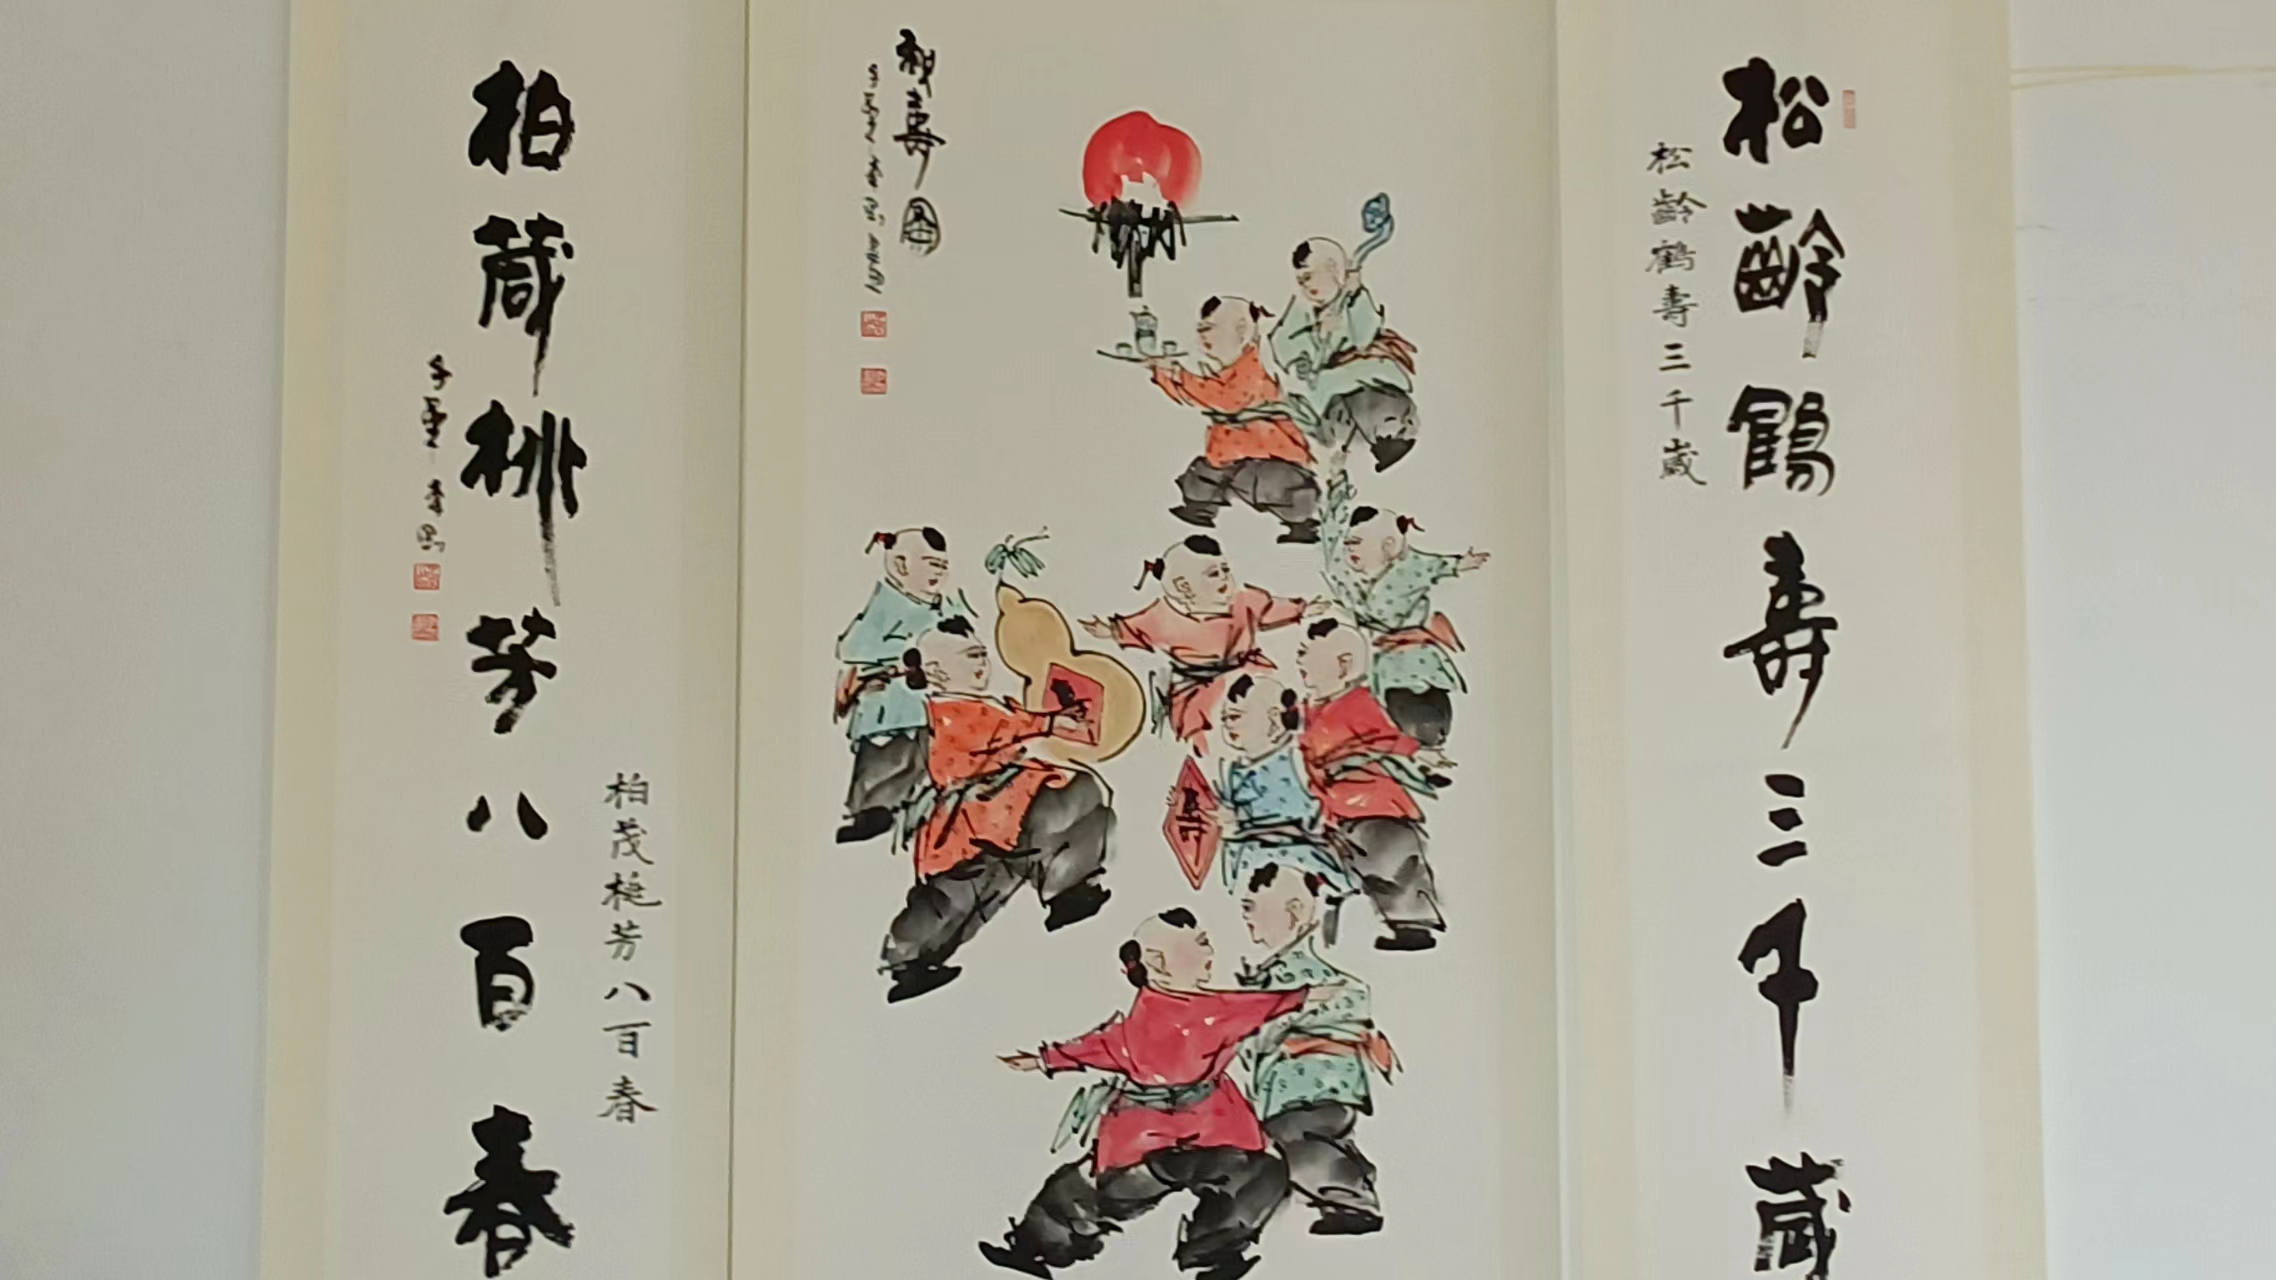 松齡鶴壽三千歲
松齡鶴壽三千歲
祝壽圖
壽
柏茂桃芳八百春
柏茂桃芳八百春